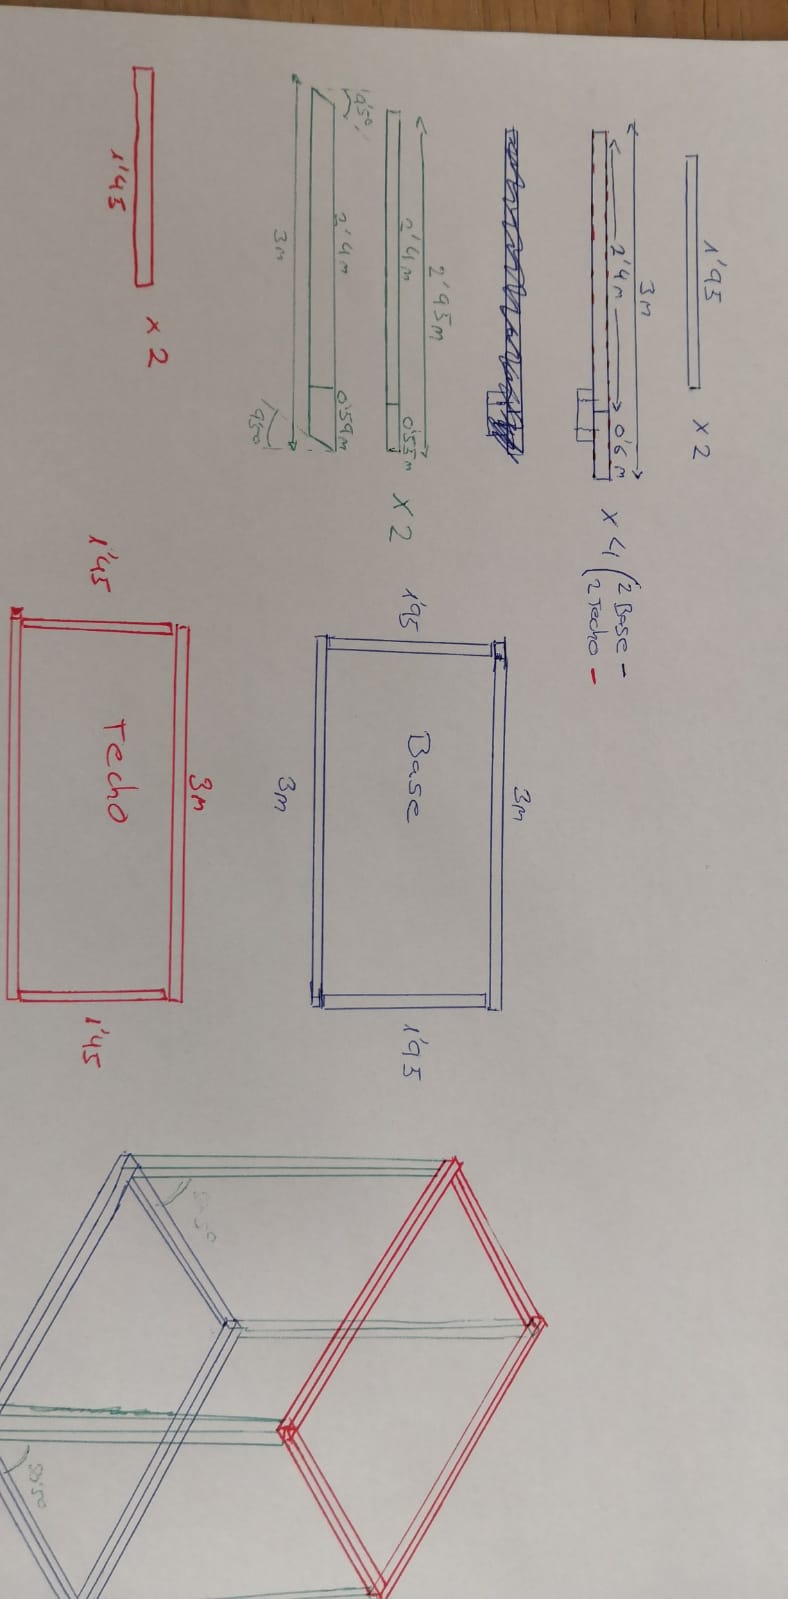 1'95
x 2
3m
2'4m 0'6 m
x 4 (2 Base -
2 Techo -
2'95m
2'4m 0'55m
x 2
9'5º
2'4m 0'59m
3m
9'5º
1'45
x 2
3m
1'95
Base
1'95
3m
3m
1'45
Techo
1'45